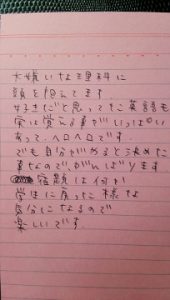 大嫌いな理科に
頭を抱えてます
好きだと思ってた英語も
実は覚える事がいっぱい
あって、ヘロヘロです。
でも自分がやると決めた
事なのでがんばります
宿題は何か
学生に戻った様な
気分になるので
楽しいです。